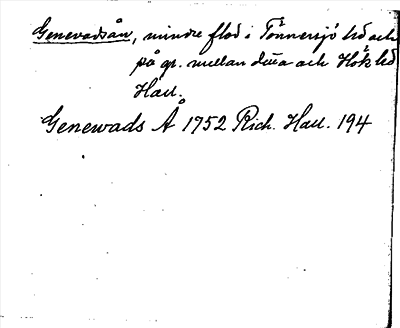 Genevadsån, mindre flod i Tönnersjö hd och
på gr. mellan detta och Höks hd
Hall.
Genewads Å 1752 Rich. Hall. 194